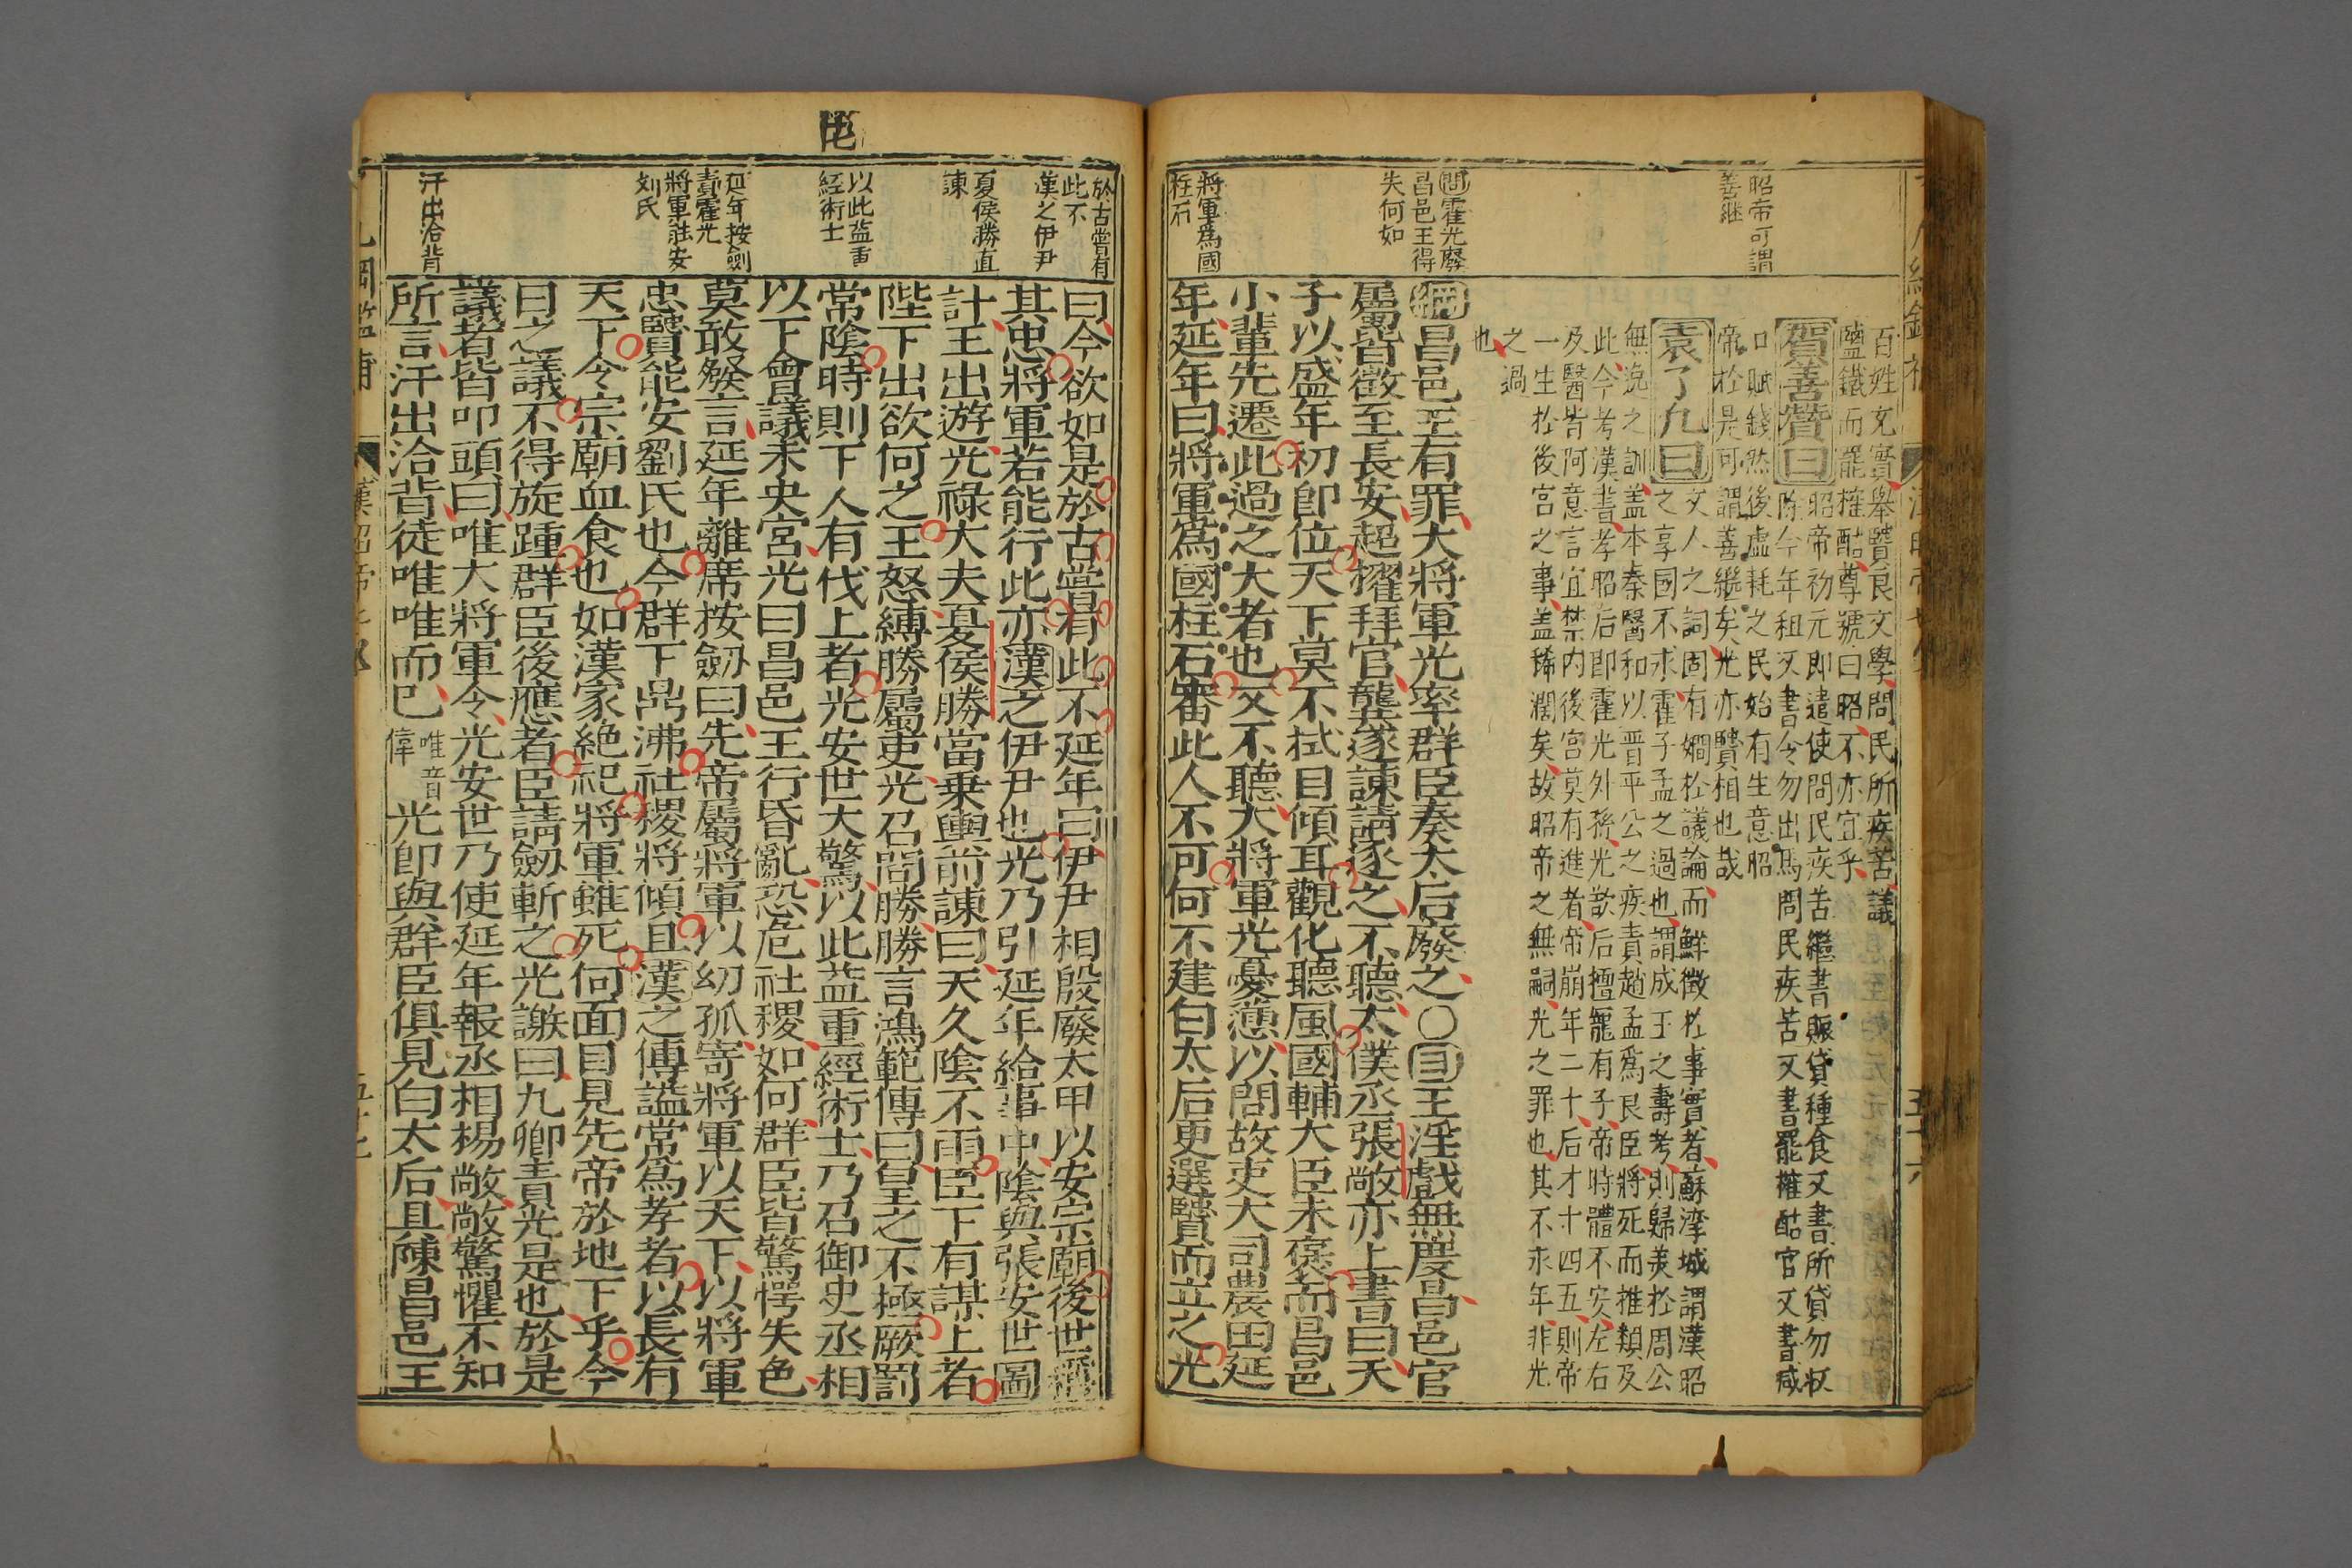 昭帝可謂
善継
問霍光廢
昌邑王得
失何如
將軍為國
柱石
百姓充實舉賢良文學問民所疾苦議
鹽鐵而罷榷酤尊號曰昭不亦宜乎
賀善贊曰
昭帝初元即遣使問民疾苦繼書賑貸種食又書所貸勿收
除今年租又書令勿出馬問民疾苦又書罷榷酤官又書减
口賦錢然後虚耗之民始有生意昭
帝於是可謂善繼矣光亦賢相也哉
袁了凡曰
文人之詞固有嫺於議論而鮮徵於事實者蘇㴑城謂漢昭
之享國不求霍子孟之過也謂成王之壽考則歸美於周公
無逸之訓盖本秦醫和以晋平公之疾責趙孟爲良臣將死而推類及
此今考漢書孝昭后即霍光外孫光欲后擅寵有子帝時體不安左右
及醫皆阿意言宜禁内後宫莫有進者帝崩年二十后才十四五則帝
一生於後宫之事盖稀濶矣故昭帝之無嗣光之罪也其不永年非光
之過
也
綱昌邑王有罪大將軍光率群臣奏太后廢之○目王淫戲無度昌邑官
屬皆徵至長安超擢拜官龔遂諫請逐之不聽太僕丞張敞亦上書曰天
子以盛年初即位天下莫不拭目傾耳觀化聽風國輔大臣未褒而昌邑
小輦先遷此過之大者也又不聽大將軍光憂懣以問故吏大司農田延
年延年曰將軍爲國柱石審此人不可何不建白太后更選賢而立之光
於古嘗有
此不
漢之伊尹
夏侯勝直
諫
以此益重
經術士
延年按劍
責霍光
將軍能安
刘氏
汗出洽背
曰今欲如是於古嘗有此不延年曰伊尹相殷廢太甲以安宗廟後世稱
其忠將軍若能行此亦漢之伊尹也光乃引延年給事中陰與張安世圖
計王出遊光祿大夫夏侯勝當乗輿前諫曰天久陰不雨臣下有謀上者
陛下出欲何之王怒縛勝屬吏光召問勝勝言鴻範傳曰皇之不極厥罰
常陰時則下人有伐上者光安世大驚以此益重經術士乃召御史丞相
以下會議未央宮光曰昌邑王行昏亂恐危社稷如何群臣皆驚愕失色
莫敢發言延年離席按劒曰先帝屬將軍以幼孤寄將軍以天下以將軍
忠賢能安劉氏也今群下鼎沸社稷將傾且漢之傳謚常爲孝者以長有
天下令宗廟血食也如漢家絶祀將軍雖死何面目見先帝於地下乎今
日之議不得旋踵群臣後應者臣請劒斬之光謝曰九卿責光是也於是
議者皆叩頭曰唯大將軍令光安世乃使延年報丞相楊敞敞驚懼不知
所言汗出洽背徒唯唯而已唯音偉光卽與群臣俱見白太后具陳昌邑王